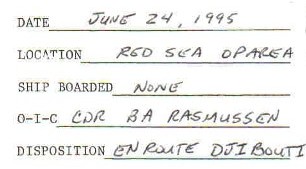 DATE JUNE 24, 1995
LOCATION RED SEA OPAREA
SHIP BOARDED NONE
O-I-C CDR BA RASMUSSEN
DISPOSITION EN ROUTE DJIBOUTI